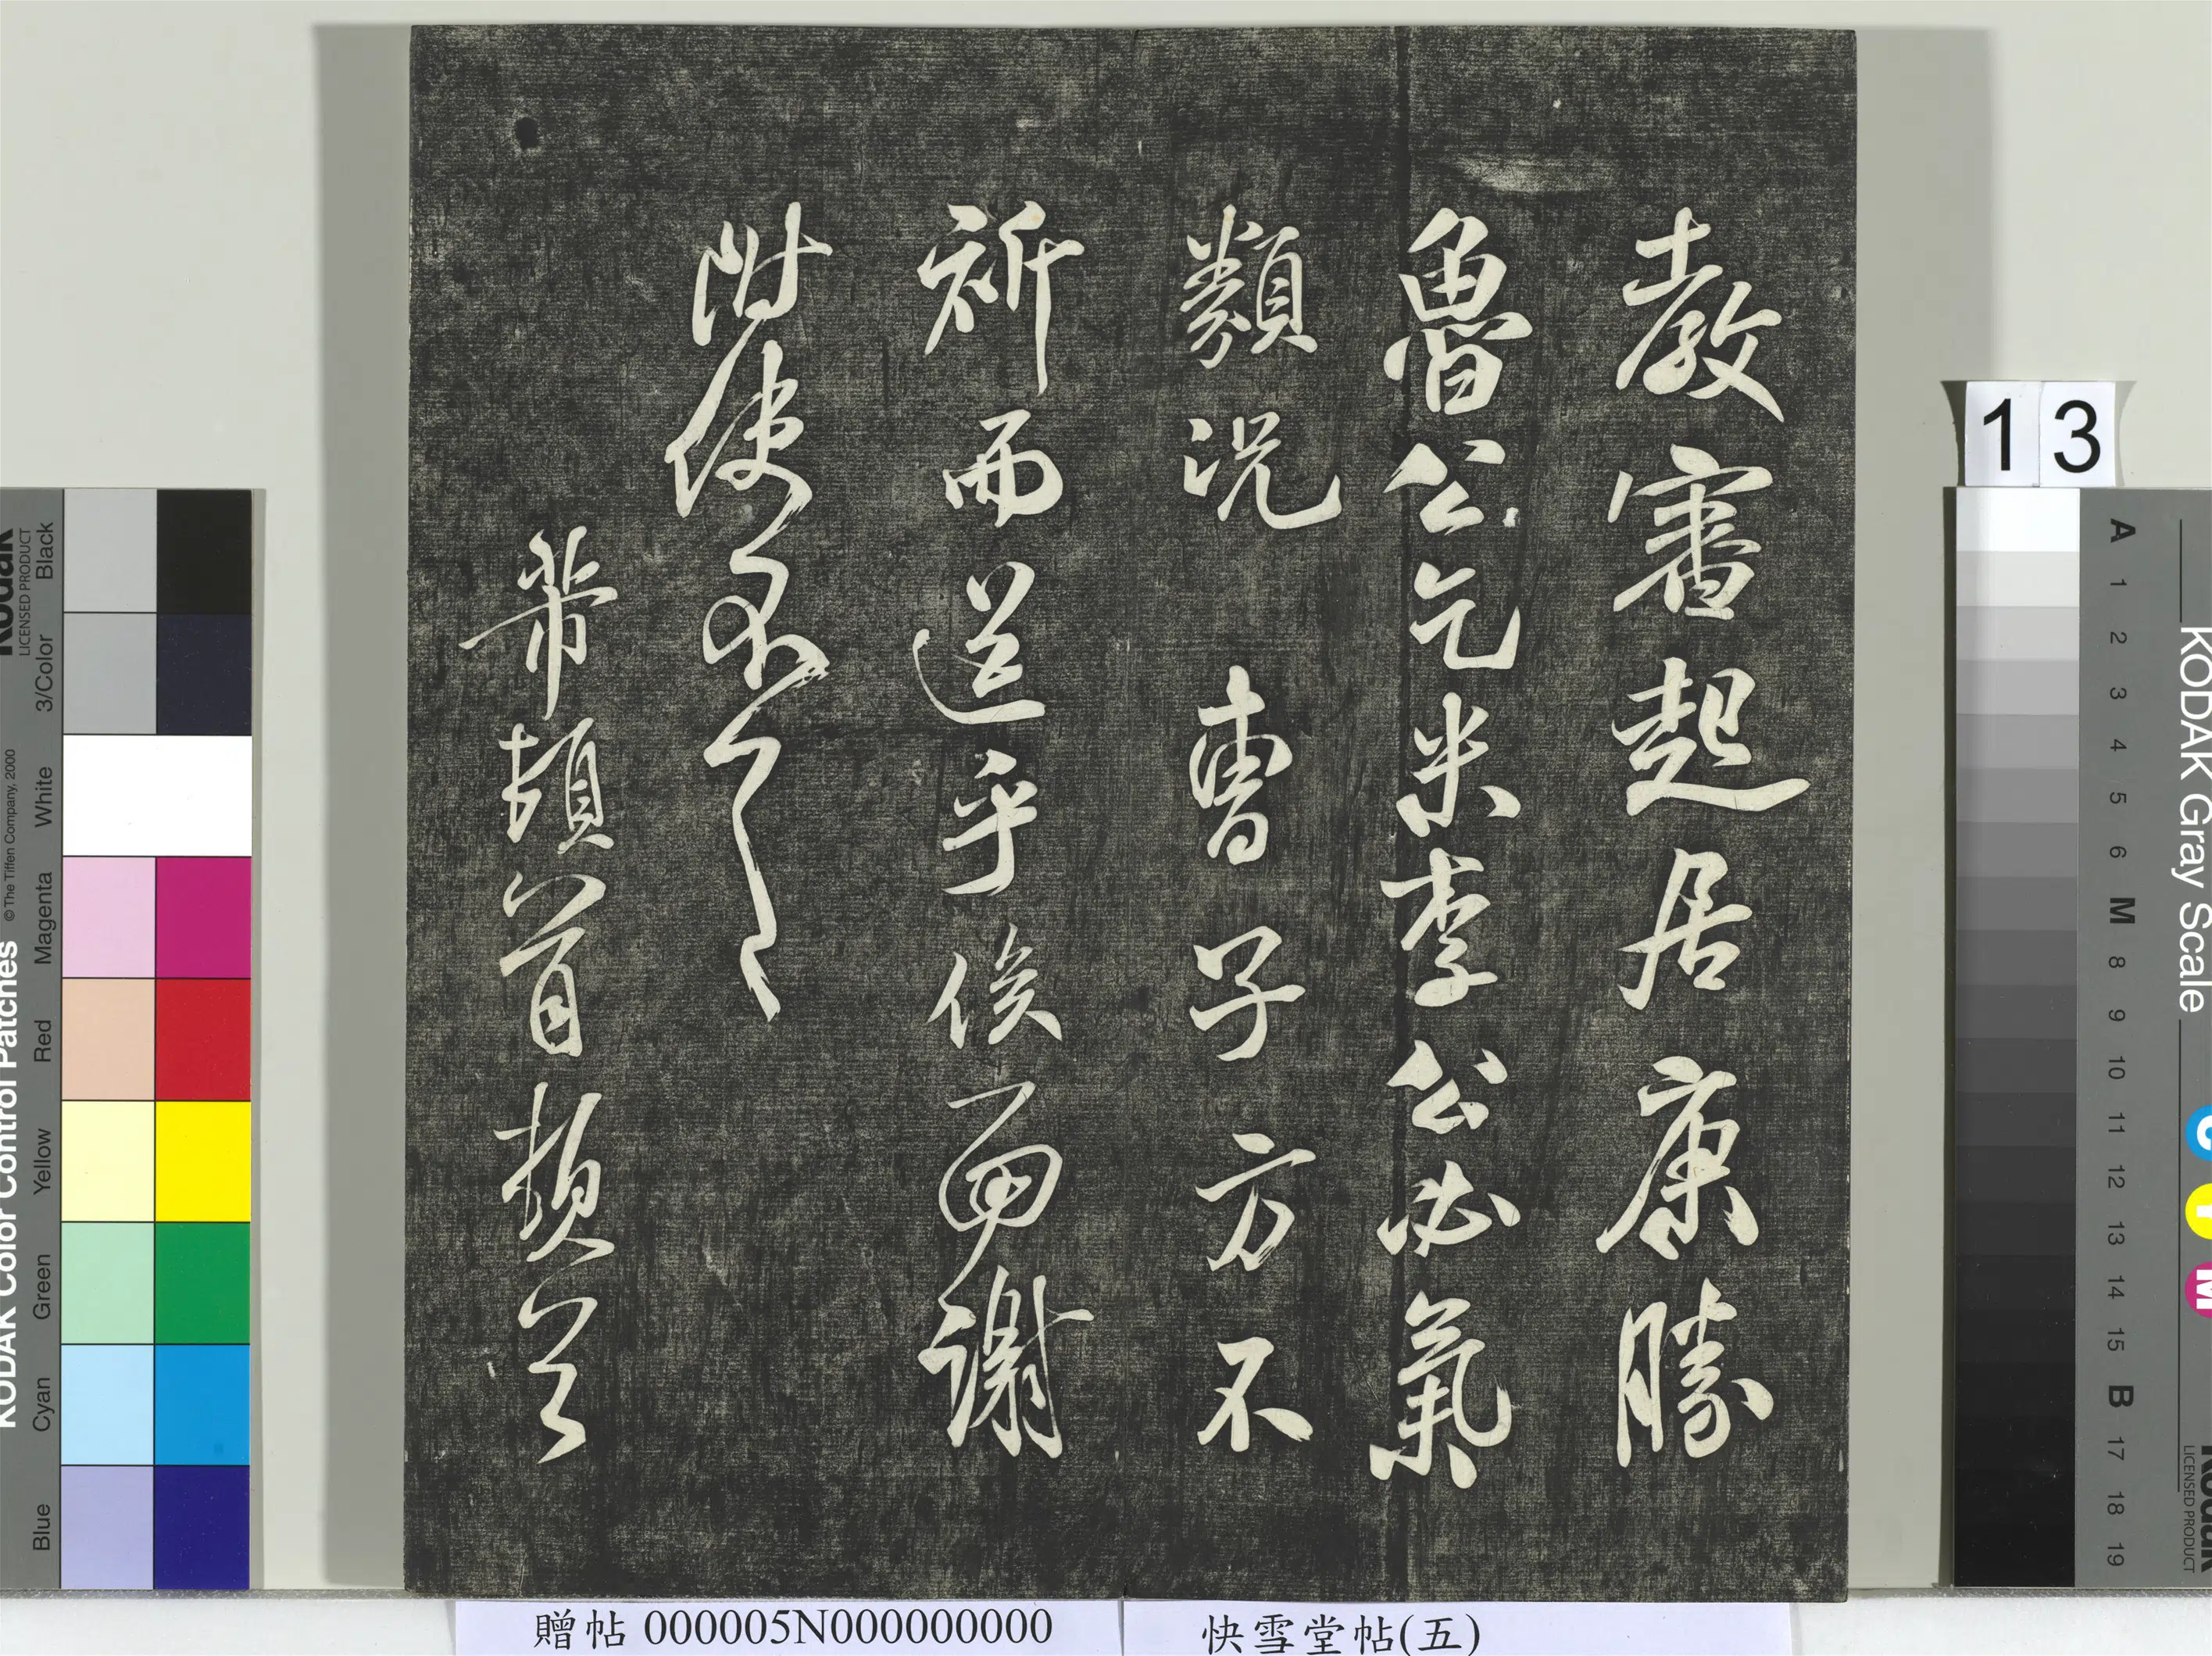 教審起居康勝
魯公乞米李公必氣
類況 曹子方不
祈而送乎俟面謝
附使
芾頓首頓首
13
KODAK Gray Scale
A 1 2 3 4 5 6 M 8 9 10 11 12 13 14 15 B 17 18 19
C Y M
Kodak
LICENSED PRODUCT
KODAK Color Control Patches
© The Tiffen Company, 2000
Kodak
LICENSED PRODUCT
Blue Cyan Green Yellow Red Magenta White 3/Color Black
贈帖 000005N000000000
快雪堂帖(五)